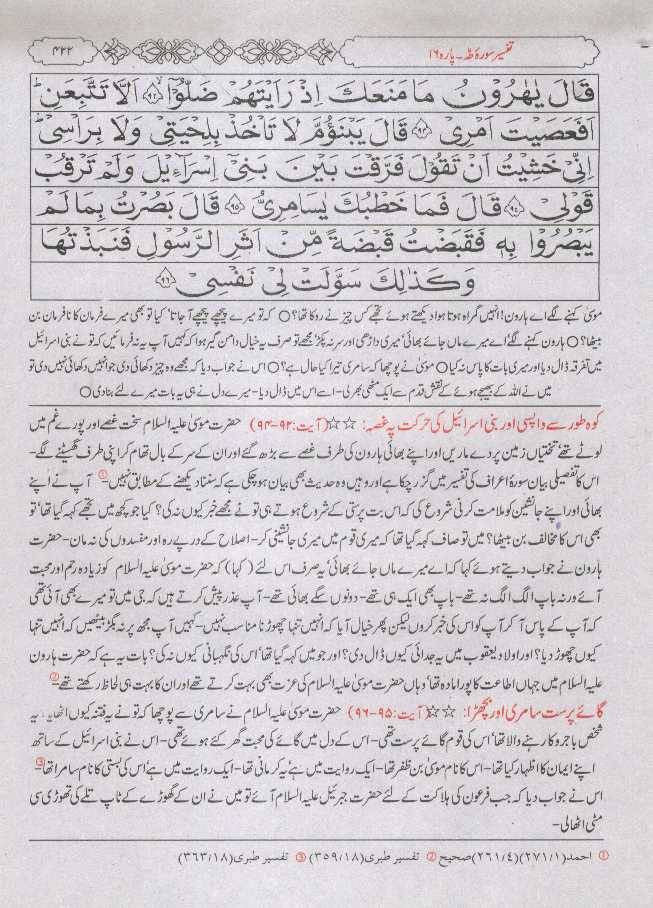 ۴۲۲
تفسیر سورۂ طہٰ۔ پارہ ۱۶
قَالَ يٰهٰرُوْنُ مَا مَنَعَكَ اِذْ رَاَيْتَهُمْ ضَلُّوْٓا ﴿۹۲﴾ اَلَّا تَتَّبِعَنِ ؕ
اَفَعَصَيْتَ اَمْرِىْ ﴿۹۳﴾ قَالَ يَبْنَؤُمَّ لَا تَاْخُذْ بِلِحْيَتِىْ وَلَا بِرَاْسِىْ ۚ
اِنِّىْ خَشِيْتُ اَنْ تَقُوْلَ فَرَّقْتَ بَيْنَ بَنِىْٓ اِسْرَآءِيْلَ وَلَمْ تَرْقُبْ
قَوْلِىْ ﴿۹۴﴾ قَالَ فَمَا خَطْبُكَ يٰسَامِرِىُّ ﴿۹۵﴾ قَالَ بَصُرْتُ بِمَا لَمْ
يَبْصُرُوْا بِهٖ فَقَبَضْتُ قَبْضَةً مِّنْ اَثَرِ الرَّسُوْلِ فَنَبَذْتُهَا
وَكَذٰلِكَ سَوَّلَتْ لِىْ نَفْسِىْ ﴿۹۶﴾
موسیٰ کہنے لگے اے ہارون! انہیں گمراہ ہوتا ہوا دیکھتے ہوئے تجھے کس چیز نے روکا تھا؟ ○ کہ تو میرے پیچھے پیچھے آ جاتا، کیا تو بھی میرے فرمان کا نافرمان بن
بیٹھا؟ ○ ہارون کہنے لگے اے میرے ماں جائے بھائی! میری داڑھی اور سر نہ پکڑ، مجھے تو صرف یہ خیال دامن گیر ہوا کہ کہیں آپ یہ نہ فرمائیں کہ تو نے بنی اسرائیل
میں تفرقہ ڈال دیا اور میری بات کا پاس نہ کیا ○ موسیٰ نے پوچھا کہ سامری تیرا کیا حال ہے؟ ○ اس نے جواب دیا کہ مجھے وہ چیز دکھائی دی جو انہیں دکھائی نہیں دی تو
میں نے اللہ کے بھیجے ہوئے کے نقش قدم سے ایک مٹھی بھر لی۔ اسے اس میں ڈال دیا۔ میرے دل نے ہی یہ بات میرے لئے بنا دی ○
کوہ طور سے واپسی اور بنی اسرائیل کی حرکت پہ غصہ: ☆☆ (آیت: ۹۲-۹۴) حضرت موسیٰ علیہ السلام سخت غصے اور پورے غم میں
لوٹے تھے، تختیاں زمین پر دے ماریں اور اپنے بھائی ہارون کی طرف غصے سے بڑھ گئے اور ان کے سر کے بال تھام کر اپنی طرف گھسیٹنے لگے۔
اس کا تفصیلی بیان سورۂ اعراف کی تفسیر میں گزر چکا ہے اور وہیں وہ حدیث بھی بیان ہو چکی ہے کہ سننا دیکھنے کے مطابق نہیں۔① آپ نے اپنے
بھائی اور اپنے جانشین کو ملامت کرنی شروع کی کہ اس بت پرستی کے شروع ہوتے ہی تو نے مجھے خبر کیوں نہ کی؟ کیا جو کچھ میں تجھے کہہ گیا تھا، تو
بھی اس کا مخالف بن بیٹھا؟ میں تو صاف کہہ گیا تھا کہ میری قوم میں میری جانشینی کر۔ اصلاح کے درپے رہ اور مفسدوں کی نہ مان۔ حضرت
ہارون نے جواب دیتے ہوئے کہا کہ اے میرے ماں جائے بھائی، یہ صرف اس لئے (کہا) کہ حضرت موسیٰ علیہ السلام کو زیادہ رحم اور محبت
آئے ورنہ باپ الگ الگ نہ تھے۔ باپ بھی ایک ہی تھے۔ دونوں سگے بھائی تھے۔ آپ عذر پیش کرتے ہیں کہ جی میں تو میرے بھی آئی تھی
کہ آپ کے پاس آ کر آپ کو اس کی خبر کروں لیکن پھر خیال آیا کہ انہیں تنہا چھوڑنا مناسب نہیں۔ کہیں آپ مجھ پر نہ بگڑ بیٹھیں کہ انہیں تنہا
کیوں چھوڑ دیا؟ اور اولاد یعقوب میں یہ جدائی کیوں ڈال دی؟ اور جو میں کہہ گیا تھا، اس کی نگہبانی کیوں نہ کی؟ بات یہ ہے کہ حضرت ہارون
علیہ السلام میں جہاں اطاعت کا پورا مادہ تھا، وہاں حضرت موسیٰ علیہ السلام کی عزت بھی بہت کرتے تھے اور ان کا بہت ہی لحاظ رکھتے تھے۔②
گائے پرست سامری اور بچھڑا: ☆☆ (آیت: ۹۵-۹۶) حضرت موسیٰ علیہ السلام نے سامری سے پوچھا کہ تو نے یہ فتنہ کیوں اٹھایا؟ یہ
شخص باجرو کا رہنے والا تھا، اس کی قوم گائے پرست تھی۔ اس کے دل میں گائے کی محبت گھر کئے ہوئے تھی۔ اس نے بنی اسرائیل کے ساتھ
اپنے ایمان کا اظہار کیا تھا۔ اس کا نام موسیٰ بن ظفر تھا۔ ایک روایت میں ہے، یہ کرمانی تھا۔ ایک روایت میں ہے، اس کی بستی کا نام سامرا تھا۔③
اس نے جواب دیا کہ جب فرعون کی ہلاکت کے لئے حضرت جبرئیل علیہ السلام آئے تو میں نے ان کے گھوڑے کے ٹاپ تلے کی تھوڑی سی
مٹی اٹھا لی۔
① احمد (۲۷۱/۱) (۲۶۱/٤) صحیح ② تفسیر طبری (۳۵۹/۱۸) ③ تفسیر طبری (۳۶۳/۱۸)